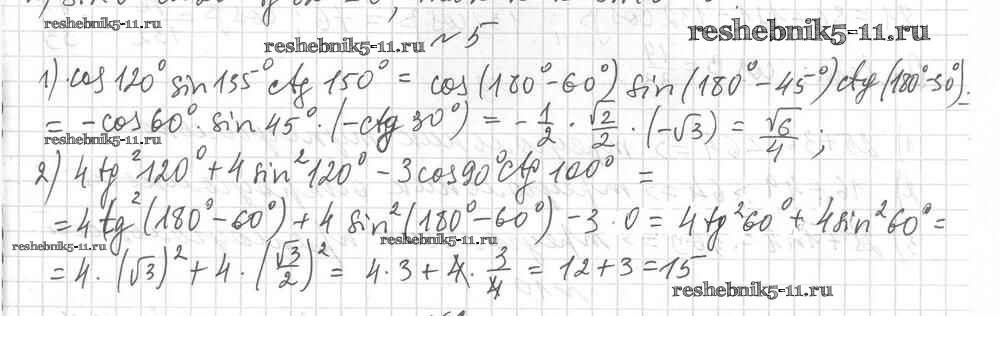 reshebnik5-11.ru
reshebnik5-11.ru № 5 reshebnik5-11.ru
1) cos 120° sin 135° ctg 150° = cos(180°-60°) sin(180°-45°) ctg(180°-30°) =
= -cos 60° · sin 45° · (-ctg 30°) = -1/2 · √2/2 · (-√3) = √6/4 ;
reshebnik5-11.ru
2) 4 tg² 120° + 4 sin² 120° - 3 cos 90° ctg 100° =
= 4 tg² (180° - 60°) + 4 sin² (180° - 60°) - 3 · 0 = 4 tg² 60° + 4 sin² 60° =
reshebnik5-11.ru reshebnik5-11.ru
= 4 · (√3)² + 4 · (√3/2)² = 4 · 3 + 4 · 3/4 = 12 + 3 = 15
reshebnik5-11.ru